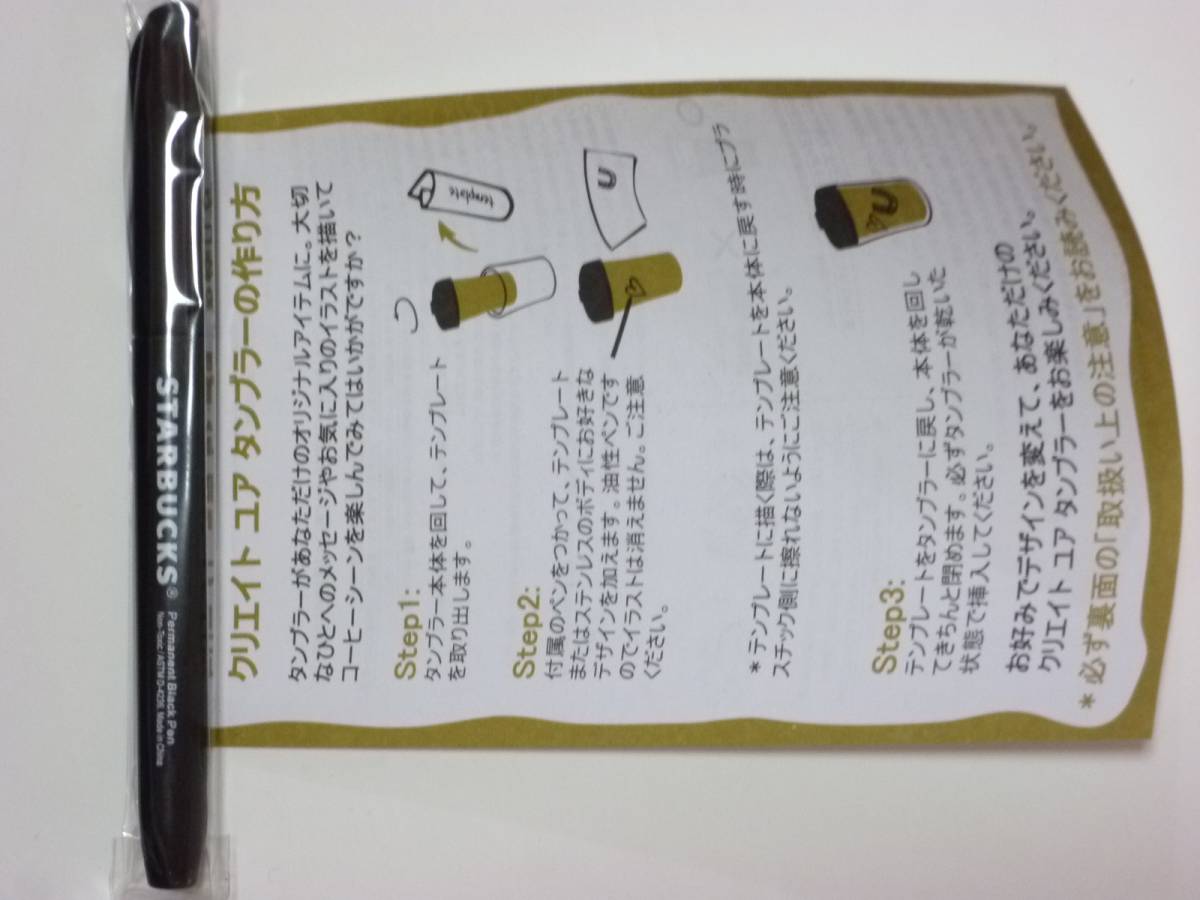 STARBUCKS®
Permanent Black Pen
Non-Toxic/ASTM D-4236, Made in China
クリエイト ユア タンブラーの作り方
タンブラーがあなただけのオリジナルアイテムに。大切
なひとへのメッセージやお気に入りのイラストを描いて
コーヒーシーンを楽しんでみてはいかがですか？
Step1:
タンブラー本体を回して、テンプレート
を取り出します。
template
Step2:
付属のペンをつかって、テンプレート
またはステンレスのボディにお好きな
デザインを加えます。油性ペンです
のでイラストは消えません。ご注意
ください。
＊テンプレートに描く際は、テンプレートを本体に戻す時にプラ
スチック側に擦れないようにご注意ください。
Step3:
テンプレートをタンブラーに戻し、本体を回し
てきちんと閉めます。必ずタンブラーが乾いた
状態で挿入してください。
お好みでデザインを変えて、あなただけの
クリエイト ユア タンブラーをお楽しみください。
＊必ず裏面の「取扱い上の注意」をお読みください。